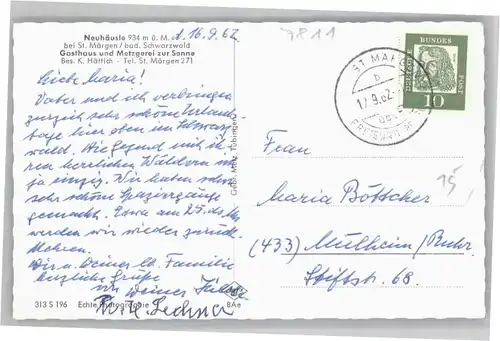 Neuhäusle 934 m ü. M.
bei St. Märgen / bad. Schwarzwald
Gasthaus und Metzgerei zur Sonne
Bes. K. Hättich - Tel. St. Märgen 271
16.9.62
7811
Liebe Maria!
Vater und ich verbringen
zurzeit sehr schöne Urlaubs-
tage hier oben im Schwarz-
wald. Die Gegend mit ih-
ren herrlichen Wäldern ist
ja einzig. Wir haben schon
sehr schöne Spaziergänge
gemacht. Etwa am 25. ds. M.
werden wir wieder zurück-
kehren.
Dir u. Deiner lb. Familie
herzliche Grüße
von Deiner
Lechner
313 S 196 Echte Photographie
BAe
Gebr. Metz, Tübingen
ST MÄRGEN
b
17.9.62
DEUTSCHE BUNDESPOST
10
15
Frau
Maria Böttscher
(433) Mülheim/Ruhr
Stiftstr. 68.